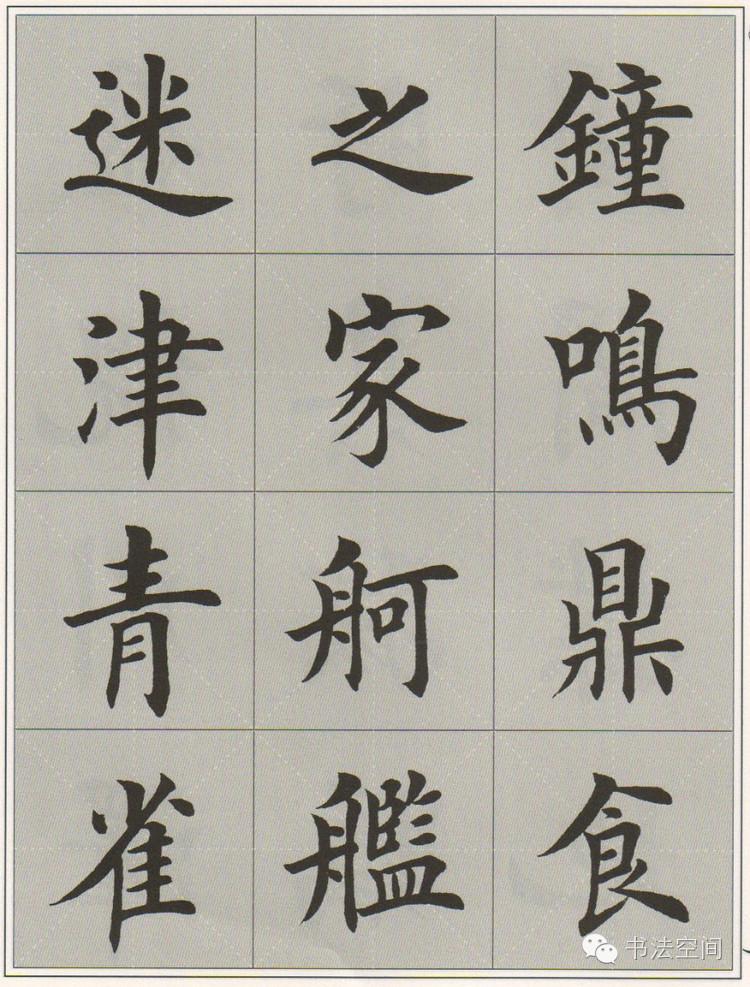 鐘鳴鼎食
之家舸艦
迷津青雀
书法空间